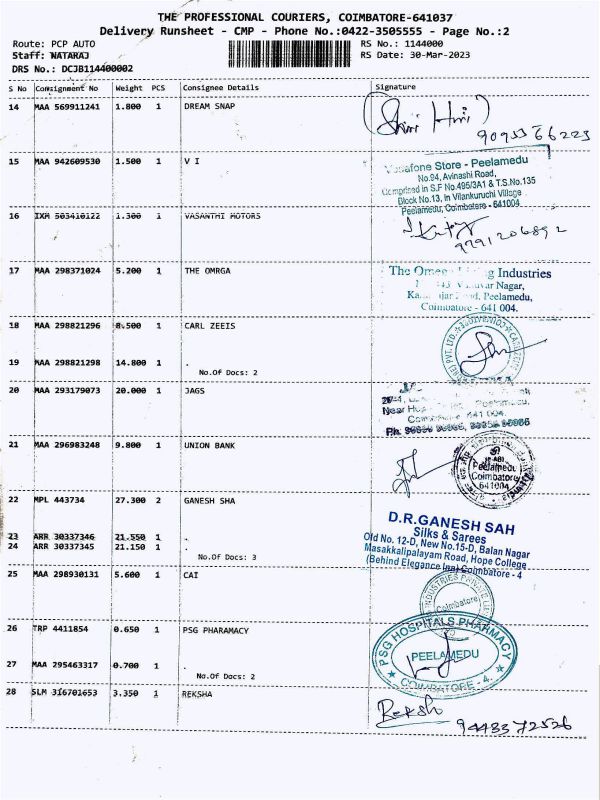 THE PROFESSIONAL COURIERS, COIMBATORE-641037
Delivery Runsheet - CMP - Phone No.:0422-3505555 - Page No.:2
Route: PCP AUTO RS No.: 1144000
Staff: NATARAJ RS Date: 30-Mar-2023
DRS No.: DCJB114400002
S No Consignment No Weight PCS Consignee Details Signature
14 MAA 569911241 1.800 1 DREAM SNAP
15 MAA 942609530 1.500 1 V I
Vodafone Store - Peelamedu
No.94, Avinashi Road,
Comprised in S.F No.495/3A1 & T.S.No.135
Block No.13, in Vilankuruchi Village
Peelamedu, Coimbatore - 641004
16 IXM 503410122 1.300 1 VASANTHI MOTORS
9791206892
17 MAA 298371024 5.200 1 THE OMRGA
The Industries
Nagar,
Peelamedu,
Coimbatore - 641 004.
18 MAA 298821296 8.500 1 CARL ZEEIS
19 MAA 298821298 14.800 1 .
No.Of Docs: 2
20 MAA 293179073 20.000 1 JAGS
21 MAA 296983248 9.800 1 UNION BANK
Peelamedu
Coimbatore
641004
22 MPL 443734 27.300 2 GANESH SHA
D.R.GANESH SAH
Silks & Sarees
Old No. 12-D, New No.15-D, Balan Nagar
Masakkalipalayam Road, Hope College
(Behind Elegance Inn) Coimbatore - 4
23 ARR 30337346 21.550 1 .
24 ARR 30337345 21.150 1 .
No.Of Docs: 3
25 MAA 298930131 5.600 1 CAI
INDUSTRIES PRIVATE
Coimbatore
26 TRP 4411854 0.650 1 PSG PHARAMACY
PSG HOSPITALS PHARMACY
PEELAMEDU
COIMBATORE - 4.
27 MAA 295463317 0.700 1 .
No.Of Docs: 2
28 SLM 316701653 3.350 1 REKSHA
Reksh
9443372526